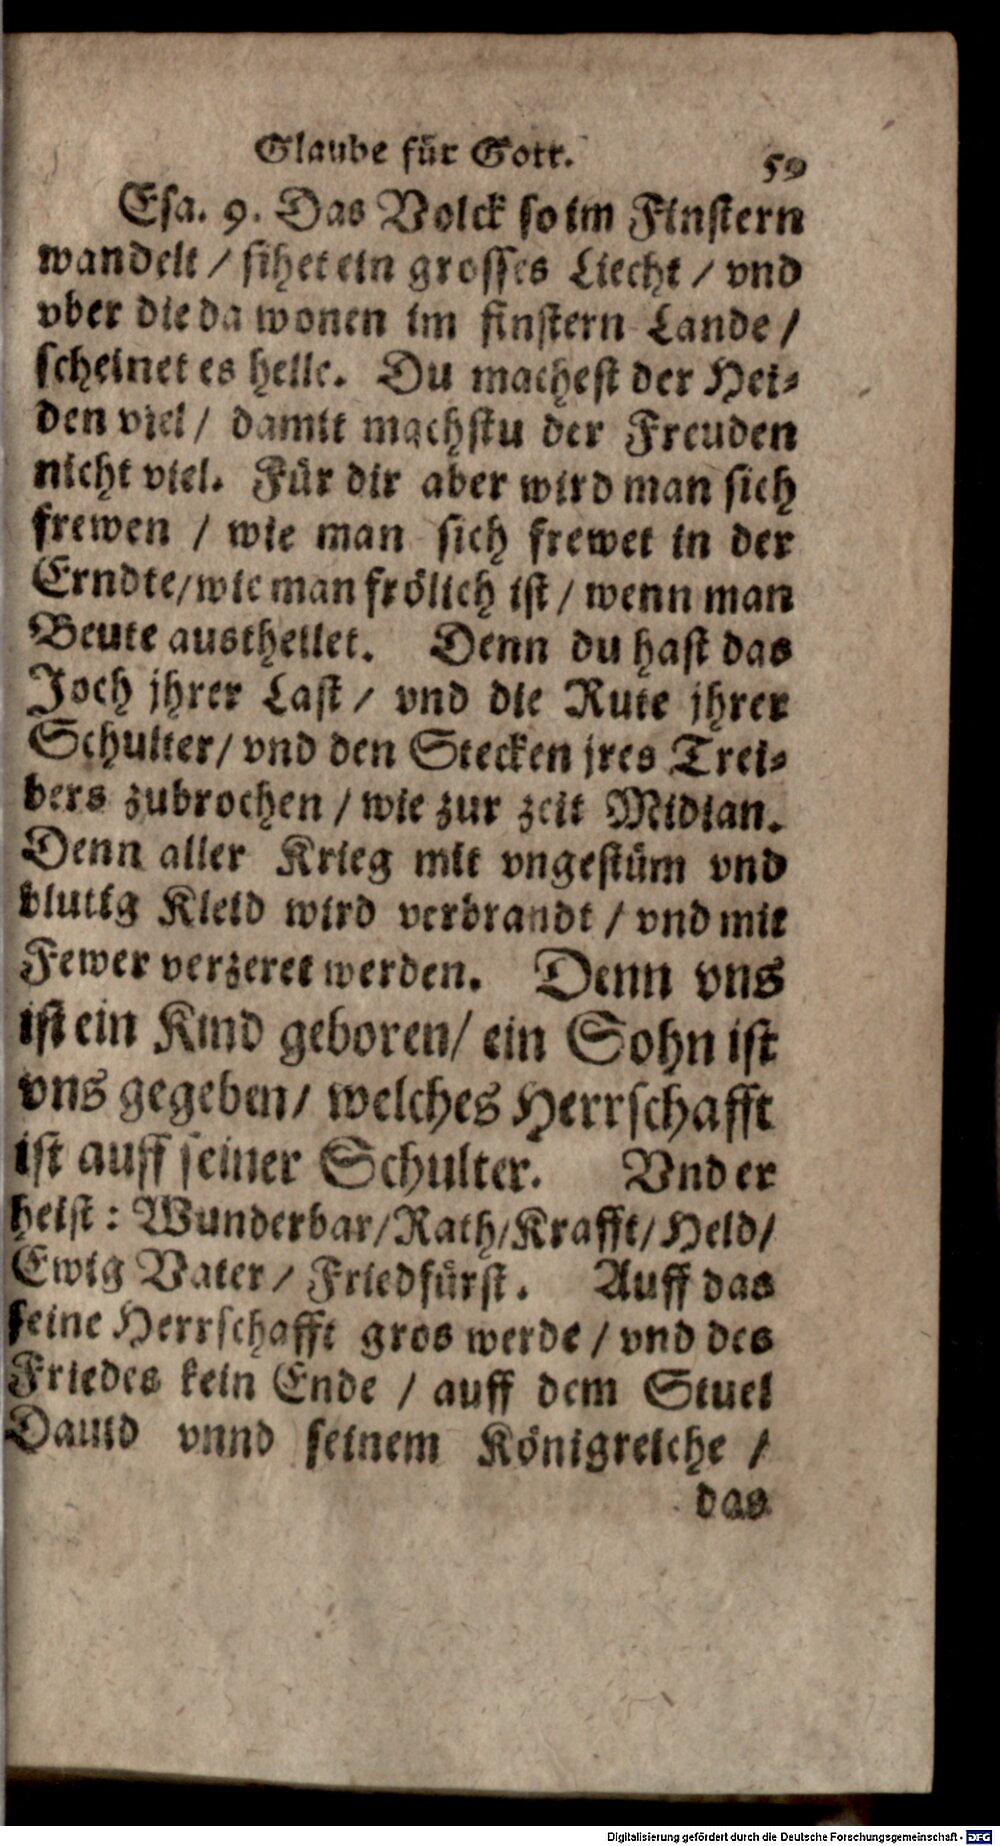 Glaube für Gott.
59
Esa. 9. Das Volck so im Finstern
wandelt / sihet ein grosses Liecht / vnd
vber die da wonen im finstern Lande /
scheinet es helle. Du machest der Hei-
den viel / damit machstu der Freuden
nicht viel. Für dir aber wird man sich
frewen / wie man sich frewet in der
Erndte / wie man frölich ist / wenn man
Beute austheilet. Denn du hast das
Joch jhrer Last / vnd die Rute jhrer
Schulter / vnd den Stecken jres Trei-
bers zubrochen / wie zur zeit Midian.
Denn aller Krieg mit vngestüm vnd
blutig Kleid wird verbrandt / vnd mit
Fewer verzeret werden. Denn vns
ist ein Kind geboren / ein Sohn ist
vns gegeben / welches Herrschafft
ist auff seiner Schulter. Vnd er
heist: Wunderbar / Rath / Krafft / Held /
Ewig Vater / Friedfürst. Auff das
seine Herrschafft gros werde / vnd des
Friedes kein Ende / auff dem Stuel
Dauid vnnd seinem Königreiche /
das
Digitalisierung gefördert durch die Deutsche Forschungsgemeinschaft - DFG